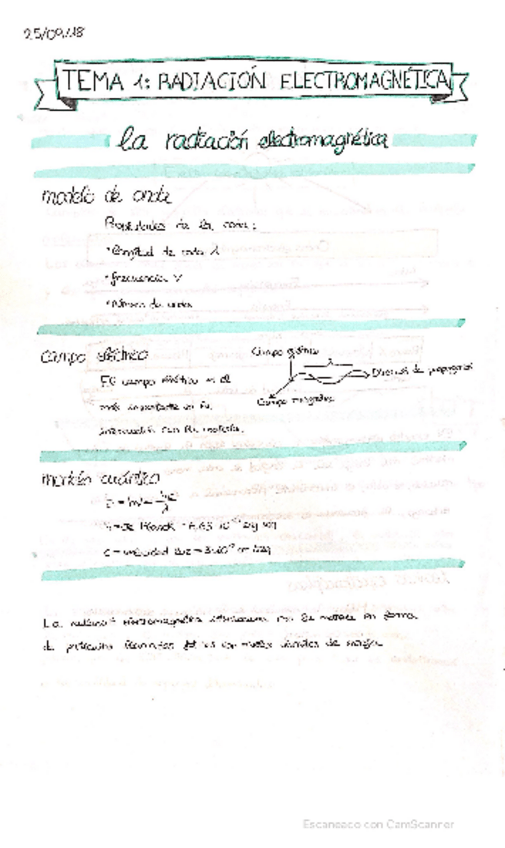 25/09/18
TEMA 1: RADIACIÓN ELECTROMAGNÉTICA
la radiación electromagnética
modelo de onda
Propiedades de la onda:
·longitud de onda λ
·frecuencia ν
·número de onda
campo eléctrico
Campo eléctrico
λ
Dirección de propagación
Campo magnético
El campo eléctrico es el
más importante en la
interacción con la materia.
modelo cuántico
h = cte Planck = 6.63 10
c = velocidad luz = 3·10
La radiación electromagnética interacciona con la materia en forma
de partículas llamadas fotones con niveles de energía.
Escaneado con CamScanner